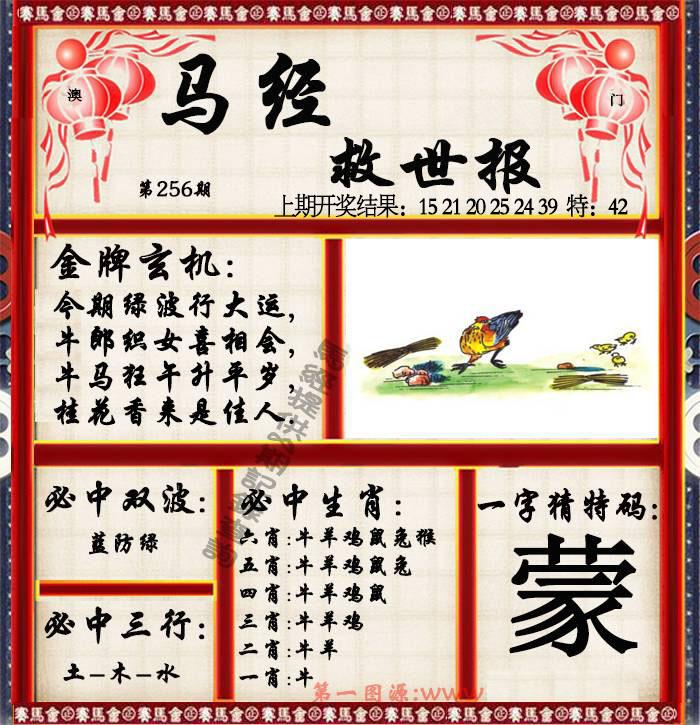 賽馬會 賽馬會 賽馬會 賽馬會 賽馬會 賽馬會 賽馬會 賽馬會 賽馬會
澳
门
马经
救世报
第256期
上期开奖结果：15 21 20 25 24 39 特：42
金牌玄机：
今期绿波行大运，
牛郎织女喜相会，
牛马狂午升平岁，
桂花香来是佳人。
必中双波：
蓝防绿
必中三行：
土–木–水
必中生肖：
六肖：牛羊鸡鼠兔猴
五肖：牛羊鸡鼠兔
四肖：牛羊鸡鼠
三肖：牛羊鸡
二肖：牛羊
一肖：牛
一字猜特码：
蒙
第一图源：www